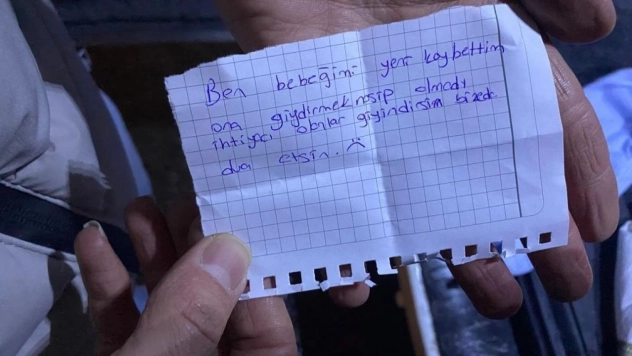 Ben bebeğimi yeni kaybettim
ona giydirmek nasip olmadı
ihtiyacı olanlar giyindirsin bizede
dua etsin.